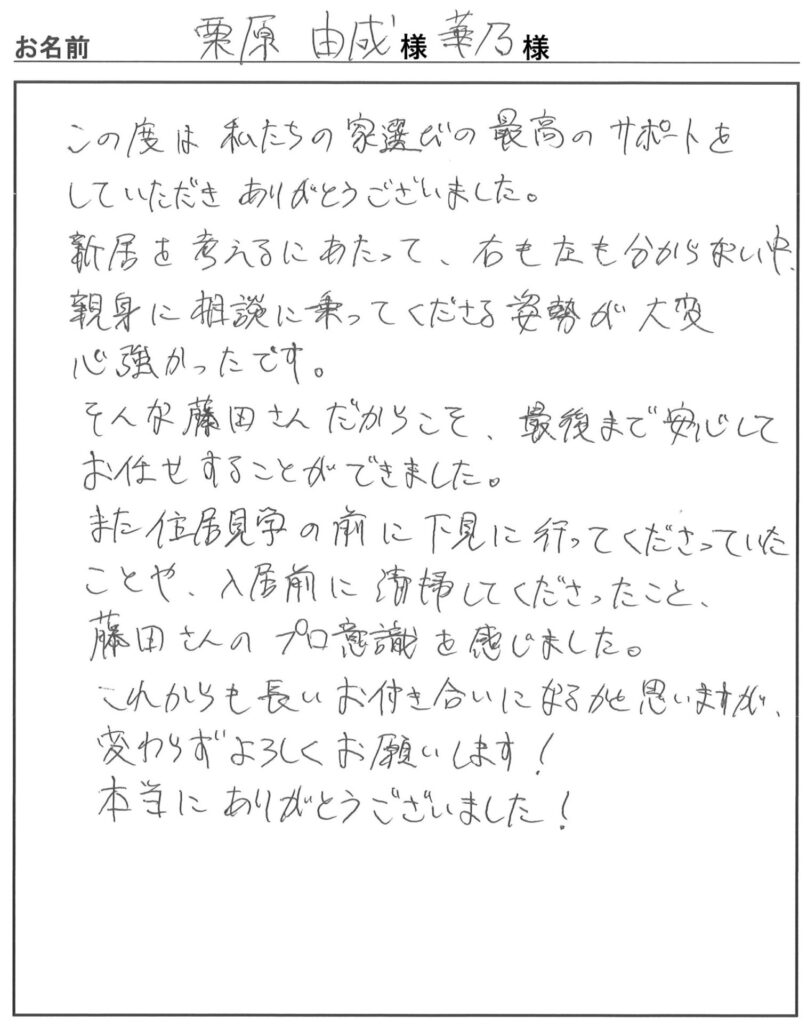 お名前 栗原 由成 様 華乃 様
この度は 私たちの家選びの最高のサポートを
していただき ありがとうございました。
新居を考えるにあたって、右も左も分からない中、
親身に相談に乗ってくださる姿勢が大変
心強かったです。
そんな藤田さんだからこそ、最後まで安心して
お任せすることができました。
また住居見学の前に下見に行ってくださっていた
ことや、入居前に清掃してくださったこと、
藤田さんのプロ意識を感じました。
これからも長いお付き合いになるかと思いますが、
変わらずよろしくお願いします！
本当にありがとうございました！